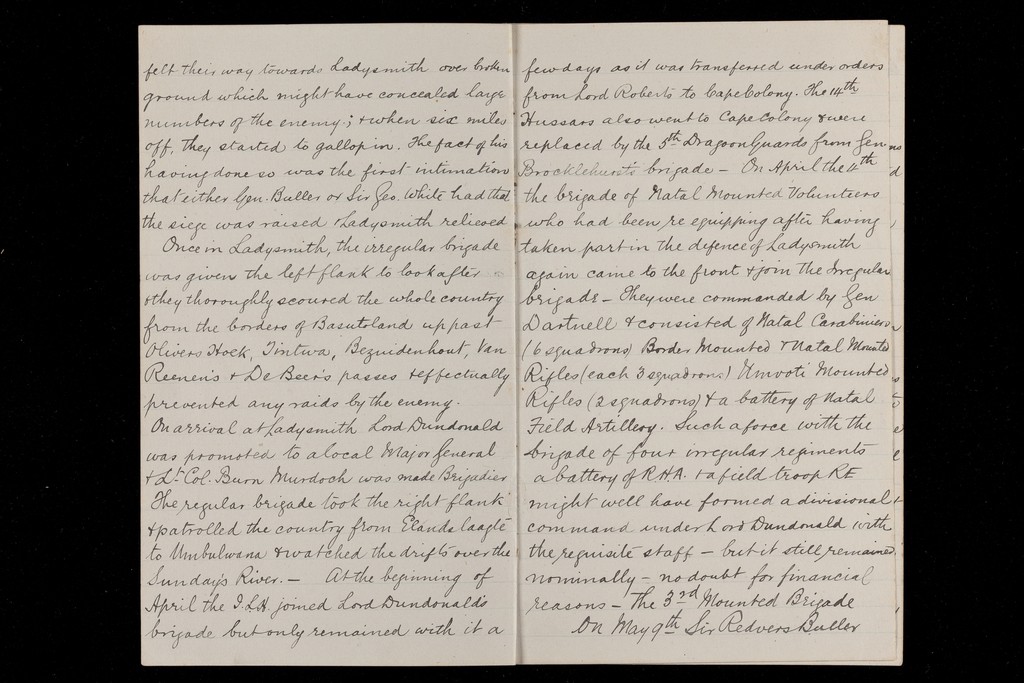 felt their way towards Ladysmith over broken
ground which might have concealed large
numbers of the enemy; & when six miles
off, they started to gallop in. The fact of his
having done so was the first intimation
that either Gen. Buller or Sir Geo. White had that
the siege was raised & Ladysmith relieved
Once in Ladysmith, the irregular brigade
was given the left flank to look after
& they thoroughly scoured the whole country
from the borders of Basutoland up past
Olivers Hoek, Tintwa, Bezuidenhout, Van
Reenen's & De Beer's passes & effectually
prevented any raids by the enemy.
On arrival at Ladysmith Lord Dundonald
was promoted to a local Major General
& Lt. Col. Burn Murdoch was made Brigadier
The regular brigade took the right flank
& patrolled the country from Elandslaagte
to Umbulwana & watched the drifts over the
Sunday's River. — At the beginning of
April the I.L.H. joined Lord Dundonald's
brigade but only remained with it a
few days as it was transferred under orders
from Lord Roberts to Cape Colony. The 14th
Hussars also went to Cape Colony & were
replaced by the 5th Dragoon Guards from Gen
Brocklehurst's brigade — On April the 11th
the brigade of Natal Mounted Volunteers
who had been re equipping after having
taken part in the defence of Ladysmith
again came to the front & join the Irregular
brigade — They were commanded by Gen
Dartnell & consisted of Natal Carabiniers
(6 squadrons) Border Mounted & Natal Mounted
Rifles (each 3 squadrons) Umvoti Mounted
Rifles (2 squadrons) & a battery of Natal
Field Artillery. Such a force with the
brigade of four irregular regiments
a battery of R.H.A. & a field troop RE
might well have formed a divisional
command under Lord Dundonald with
the requisite staff — but it still remained
nominally — no doubt for financial
reasons — The 3rd Mounted Brigade
On May 9th Sir Redvers Buller